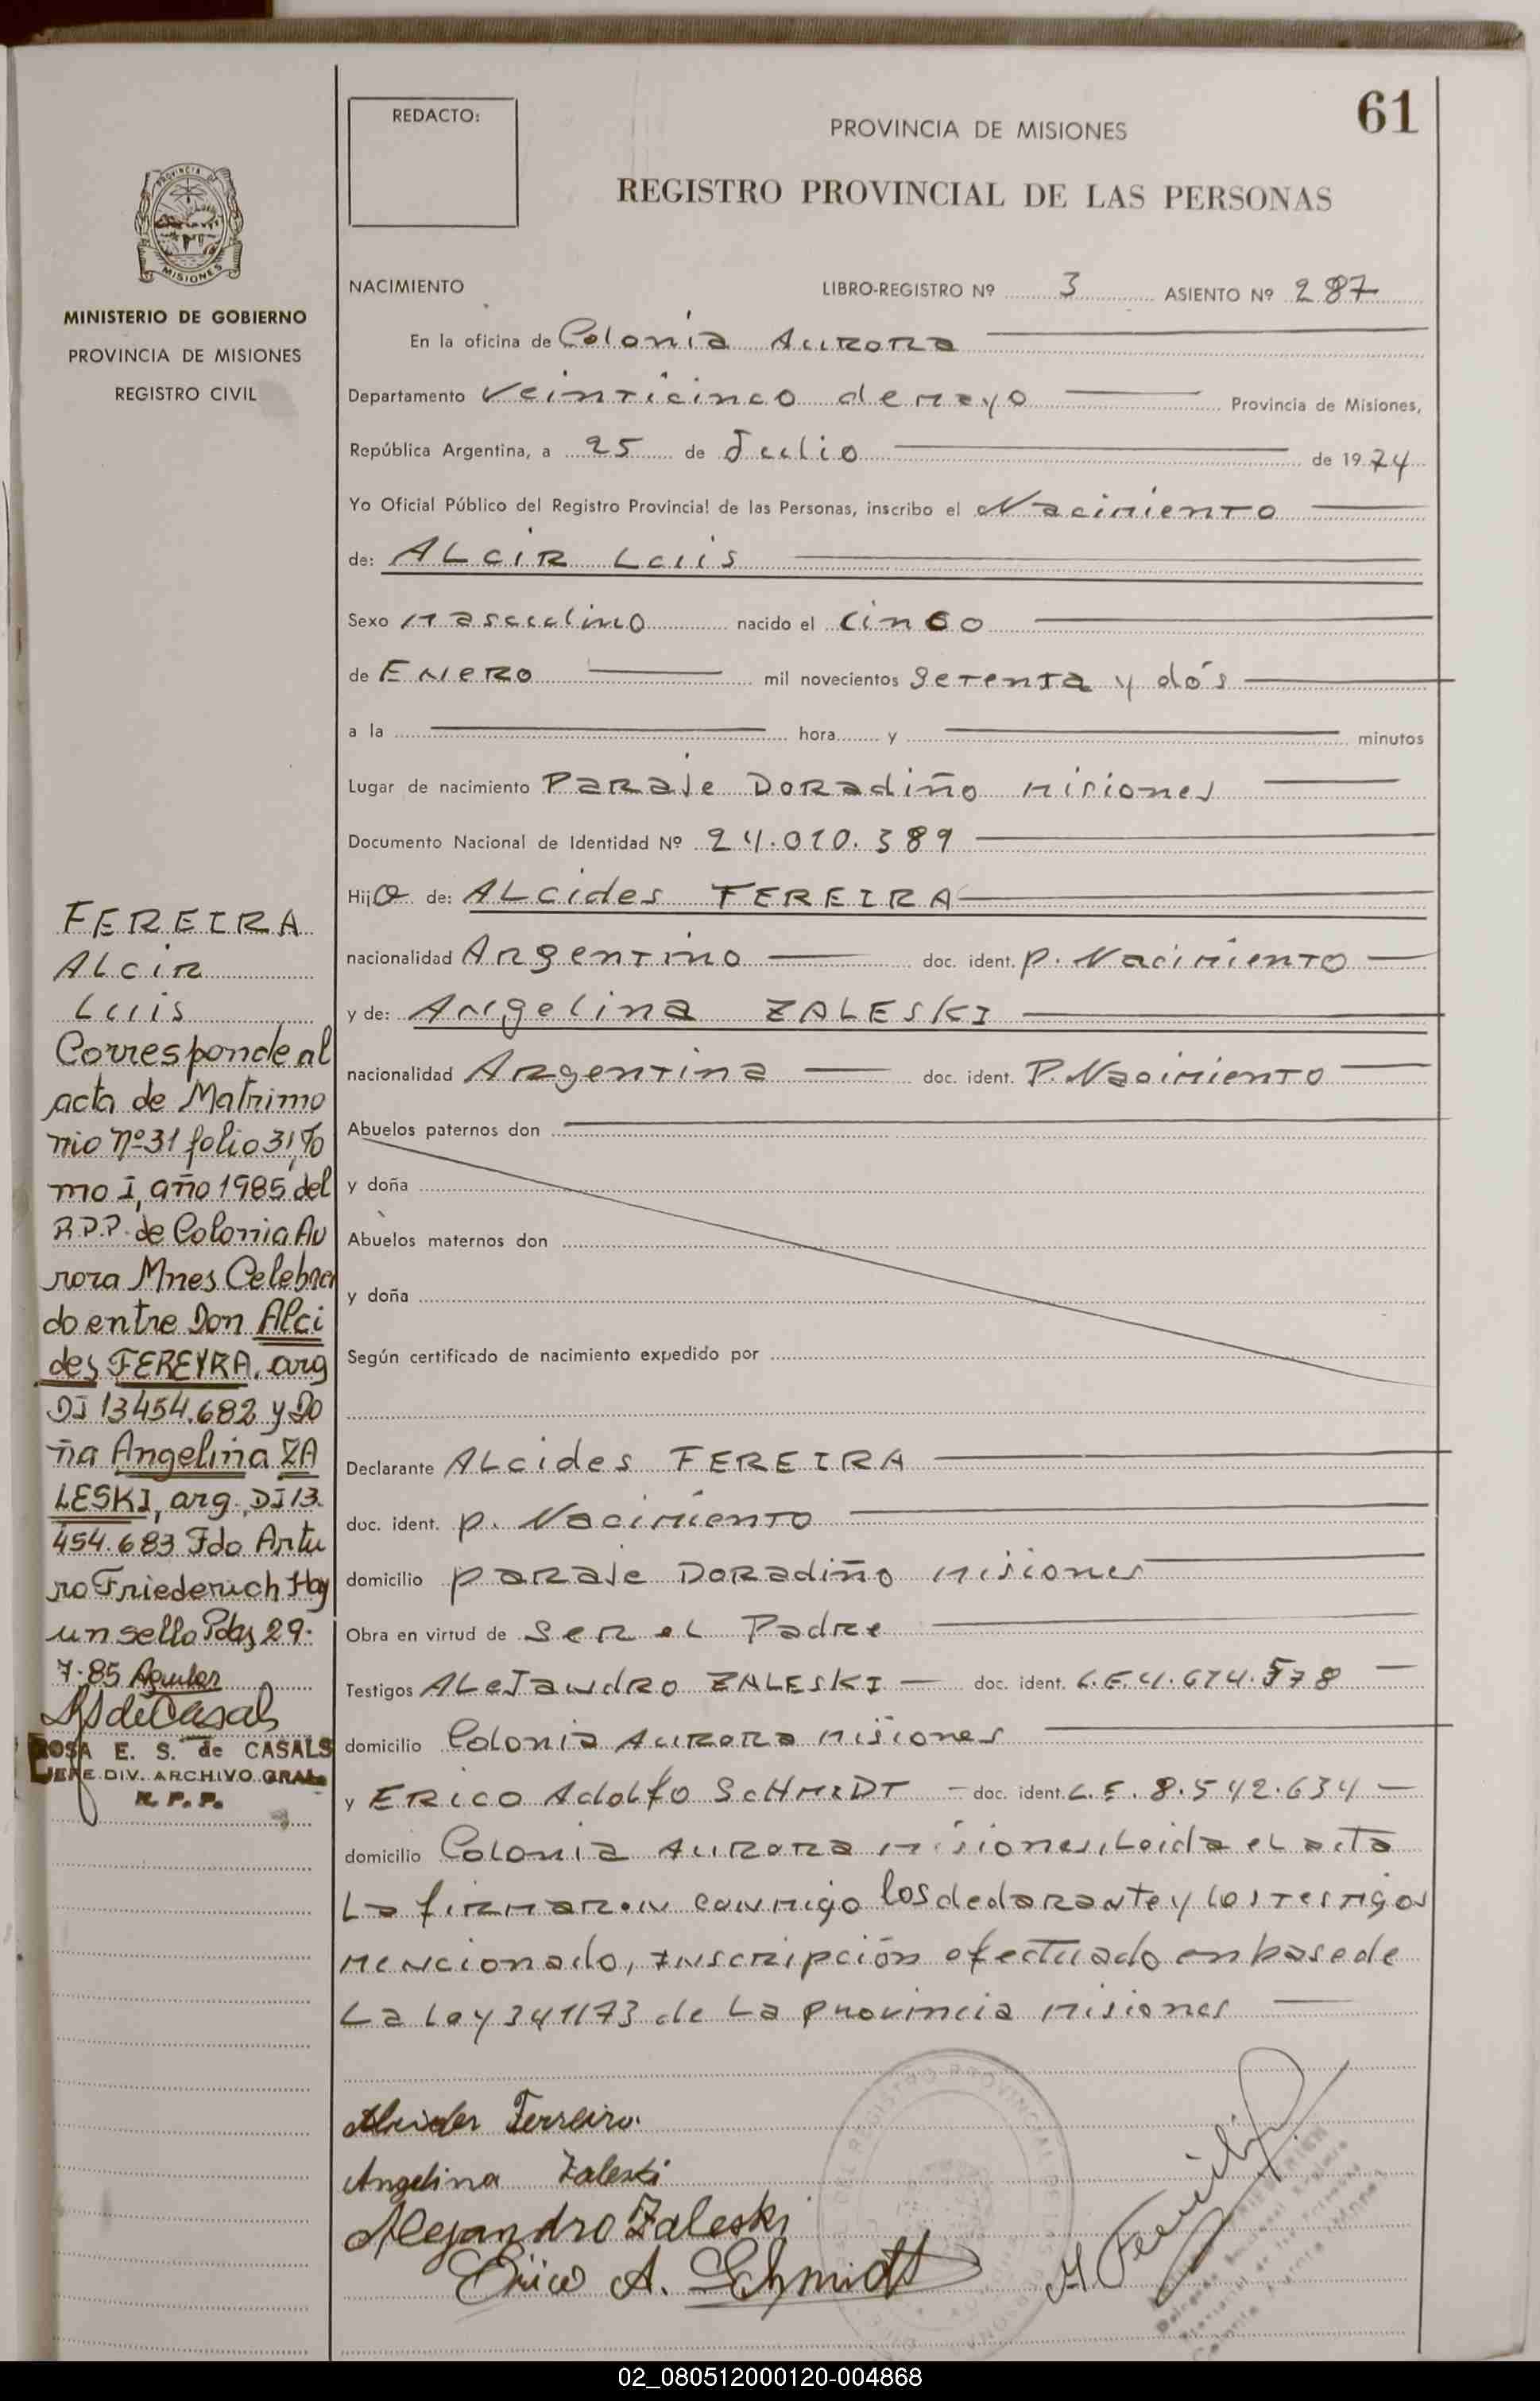 61
REDACTO:
PROVINCIA DE MISIONES
REGISTRO PROVINCIAL DE LAS PERSONAS
PROVINCIA DE
MISIONES
MINISTERIO DE GOBIERNO
PROVINCIA DE MISIONES
REGISTRO CIVIL
NACIMIENTO LIBRO-REGISTRO Nº 3 ASIENTO Nº 287
En la oficina de Colonia Aurora
Departamento Veinticinco de mayo Provincia de Misiones,
República Argentina, a 25 de Julio de 1974
Yo Oficial Público del Registro Provincial de las Personas, inscribo el Nacimiento
de: ALCIR Luis
Sexo masculino nacido el cinco
de Enero mil novecientos setenta y dós
a la hora y minutos
Lugar de nacimiento Paraje Doradiño misiones
Documento Nacional de Identidad Nº 24.010.389
Hijo de: ALcides FEREIRA
nacionalidad Argentino doc. ident. p. Nacimiento
y de: Angelina ZALESKI
nacionalidad Argentina doc. ident. P. Nacimiento
Abuelos paternos don
y doña
Abuelos maternos don
y doña
Según certificado de nacimiento expedido por
Declarante ALcides FEREIRA
doc. ident. p. Nacimiento
domicilio paraje Doradiño misiones
Obra en virtud de ser el Padre
Testigos ALeJandro ZALESKI doc. ident. L.E. 4.674.578
domicilio Colonia Aurora misiones
y ERICO AdoLfo ScHMIDT doc. ident. L.E. 8.542.634
domicilio Colonia Aurora misiones, Leida el acta
La firmaron conmigo los declarante y los testigos
mencionado, Inscripción efectuado en base de
La Ley 341/73 de La provincia misiones
FEREIRA
ALcir
Luis
Corresponde al
acta de Matrimo
nio nº 31 folio 31, To
mo I, año 1985 del
R.P.P. de Colonia Au
rora Mnes Celebra
do entre Don Alci
des FEREYRA, arg
DI 13454.682 y Do
ña Angelina ZA
LESKI, arg. DI 13.
454.683 Fdo Artu
ro Friederich Hay
un sello Pdas 29.
7.85 Aguilar
ROSA E. S. de CASALS
JEFE DIV. ARCHIVO GRAL.
R. P. P.
Alcides Ferreira
Angelina Zaleski
Alejandro Zaleski
Erico A. Schmidt
02_080512000120-004868